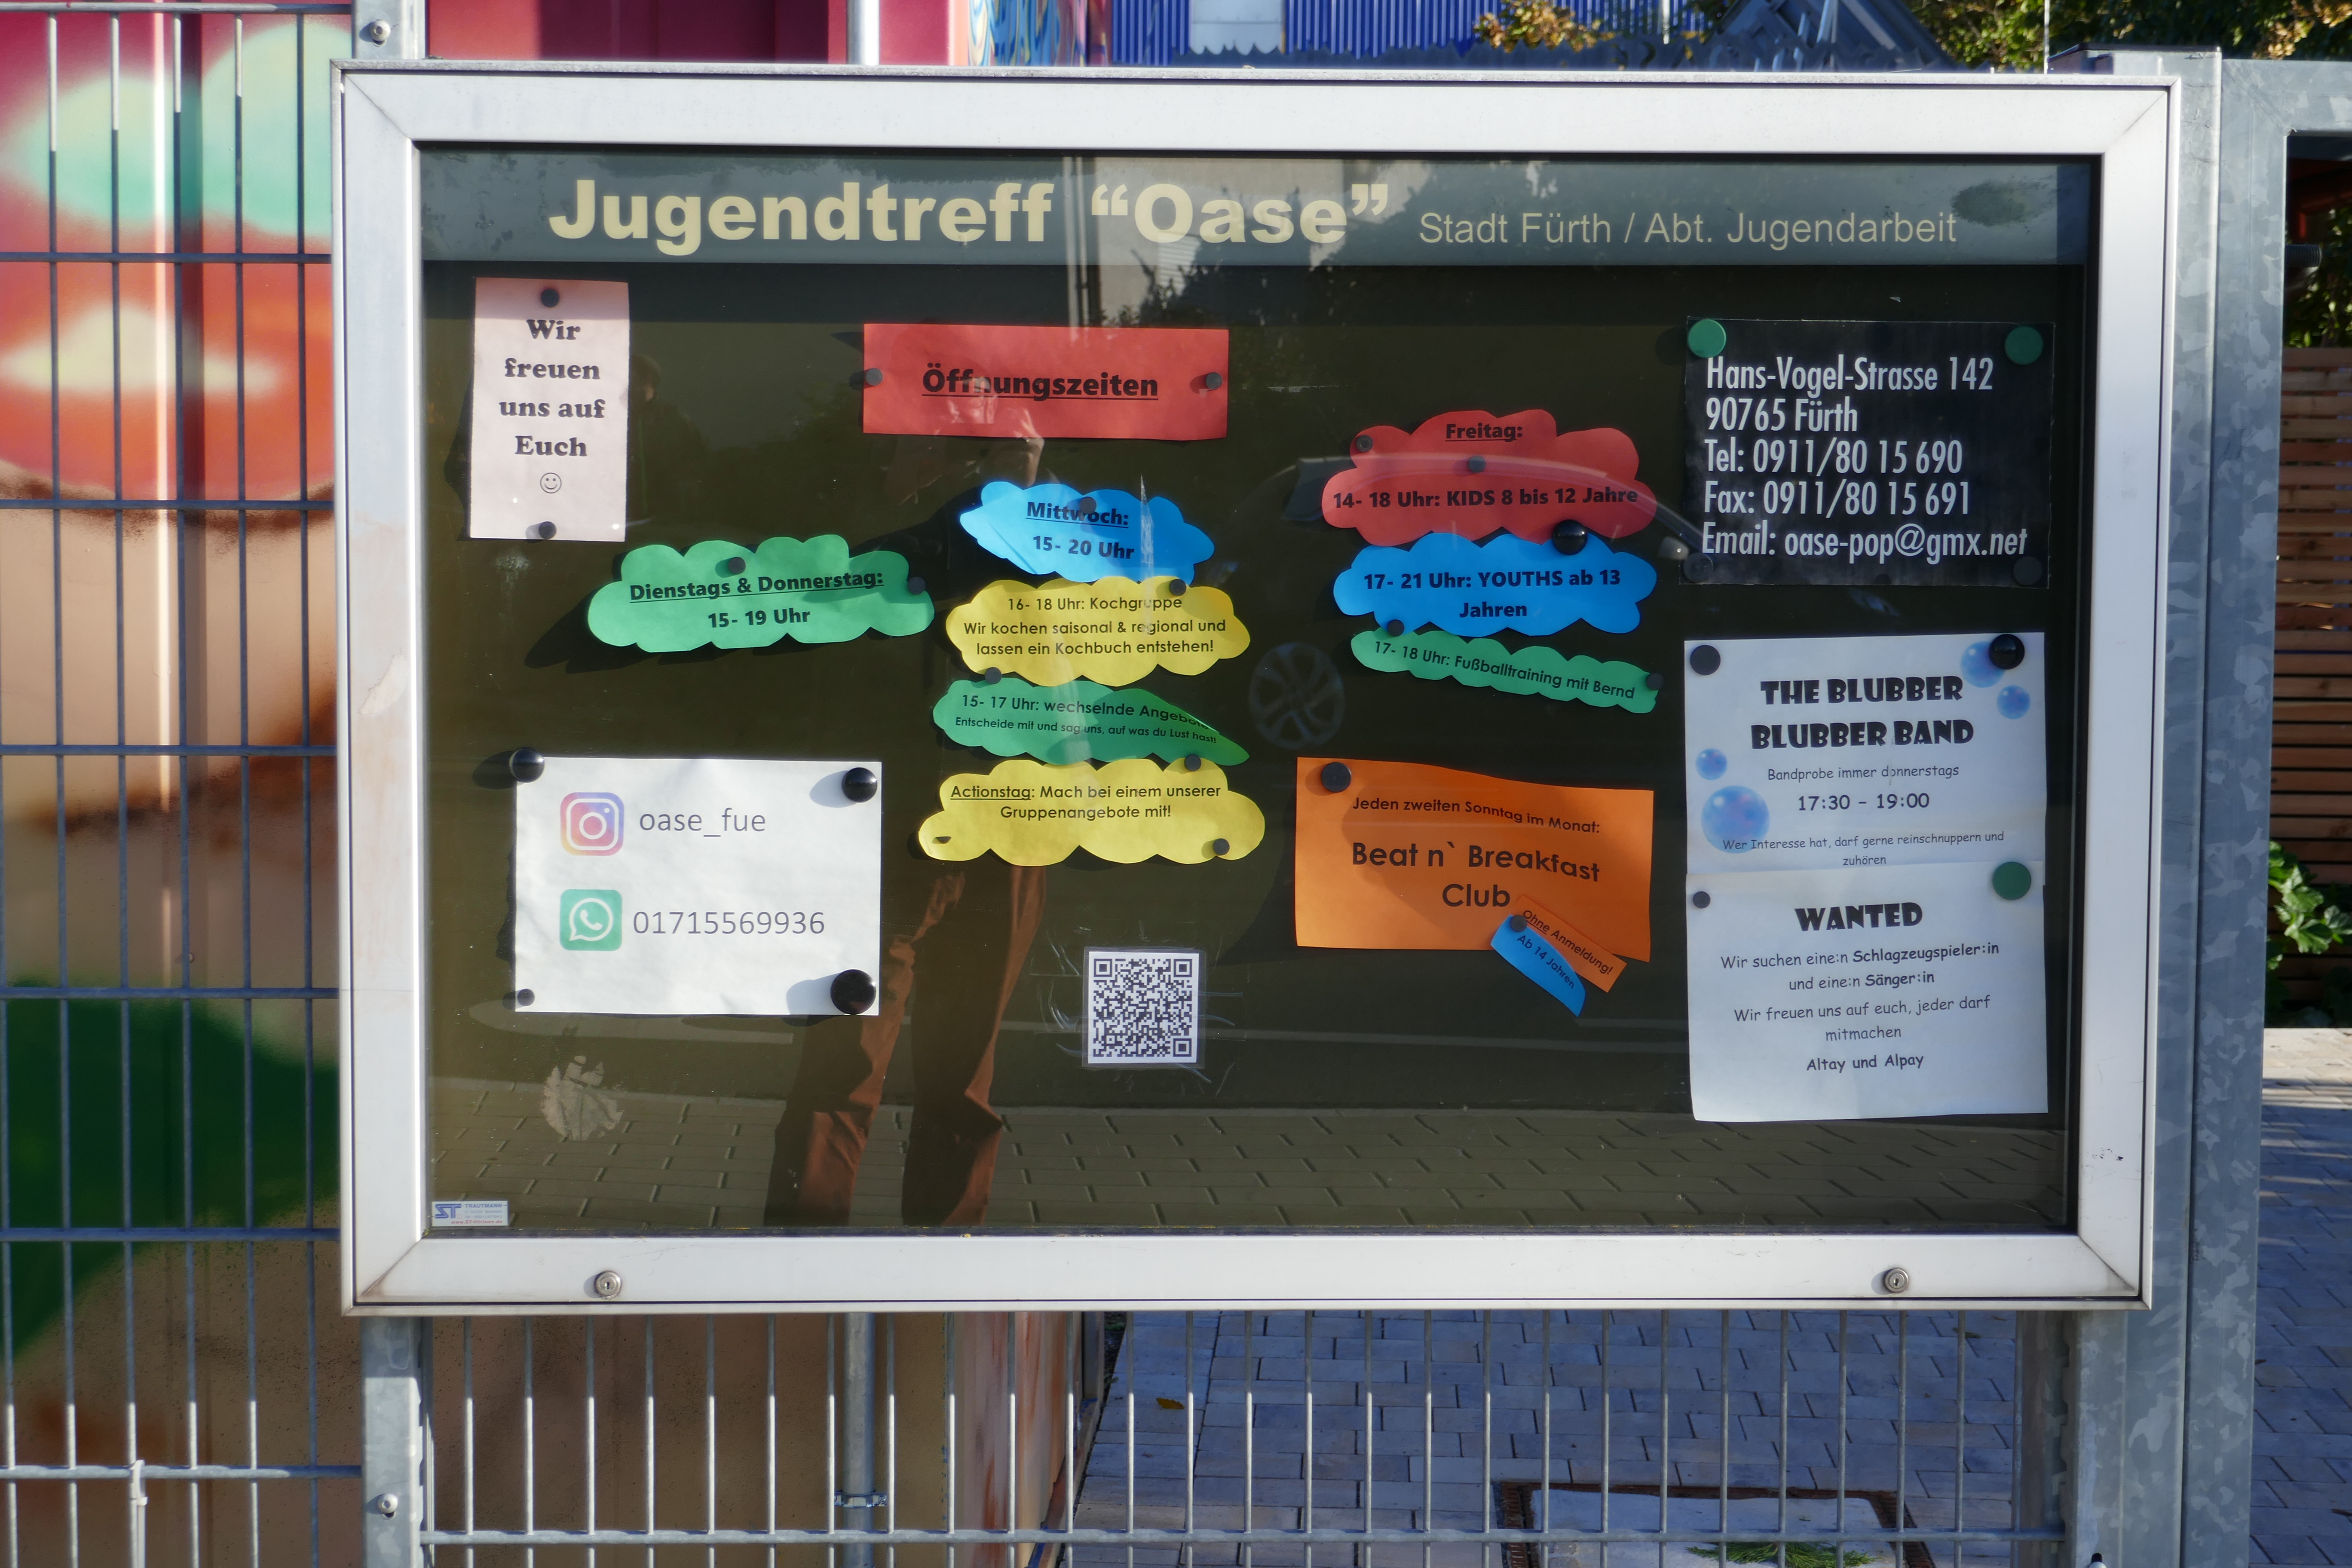 Jugendtreff “Oase” Stadt Fürth / Abt. Jugendarbeit
Wir
freuen
uns auf
Euch
☺
Öffnungszeiten
Dienstags & Donnerstag:
15- 19 Uhr
Mittwoch:
15- 20 Uhr
16- 18 Uhr: Kochgruppe
Wir kochen saisonal & regional und
lassen ein Kochbuch entstehen!
15- 17 Uhr: wechselnde Angebote
Entscheide mit und sag uns, auf was du Lust hast!
Actionstag: Mach bei einem unserer
Gruppenangebote mit!
Freitag:
14- 18 Uhr: KIDS 8 bis 12 Jahre
17- 21 Uhr: YOUTHS ab 13
Jahren
17- 18 Uhr: Fußballtraining mit Bernd
Hans-Vogel-Strasse 142
90765 Fürth
Tel: 0911/80 15 690
Fax: 0911/80 15 691
Email: oase-pop@gmx.net
oase_fue
01715569936
Jeden zweiten Sonntag im Monat:
Beat n` Breakfast
Club
Ohne Anmeldung!
Ab 14 Jahren
THE BLUBBER
BLUBBER BAND
Bandprobe immer donnerstags
17:30 – 19:00
Wer Interesse hat, darf gerne reinschnuppern und
zuhören
WANTED
Wir suchen eine:n Schlagzeugspieler:in
und eine:n Sänger:in
Wir freuen uns auf euch, jeder darf
mitmachen
Altay und Alpay
ST TRAUTMANN